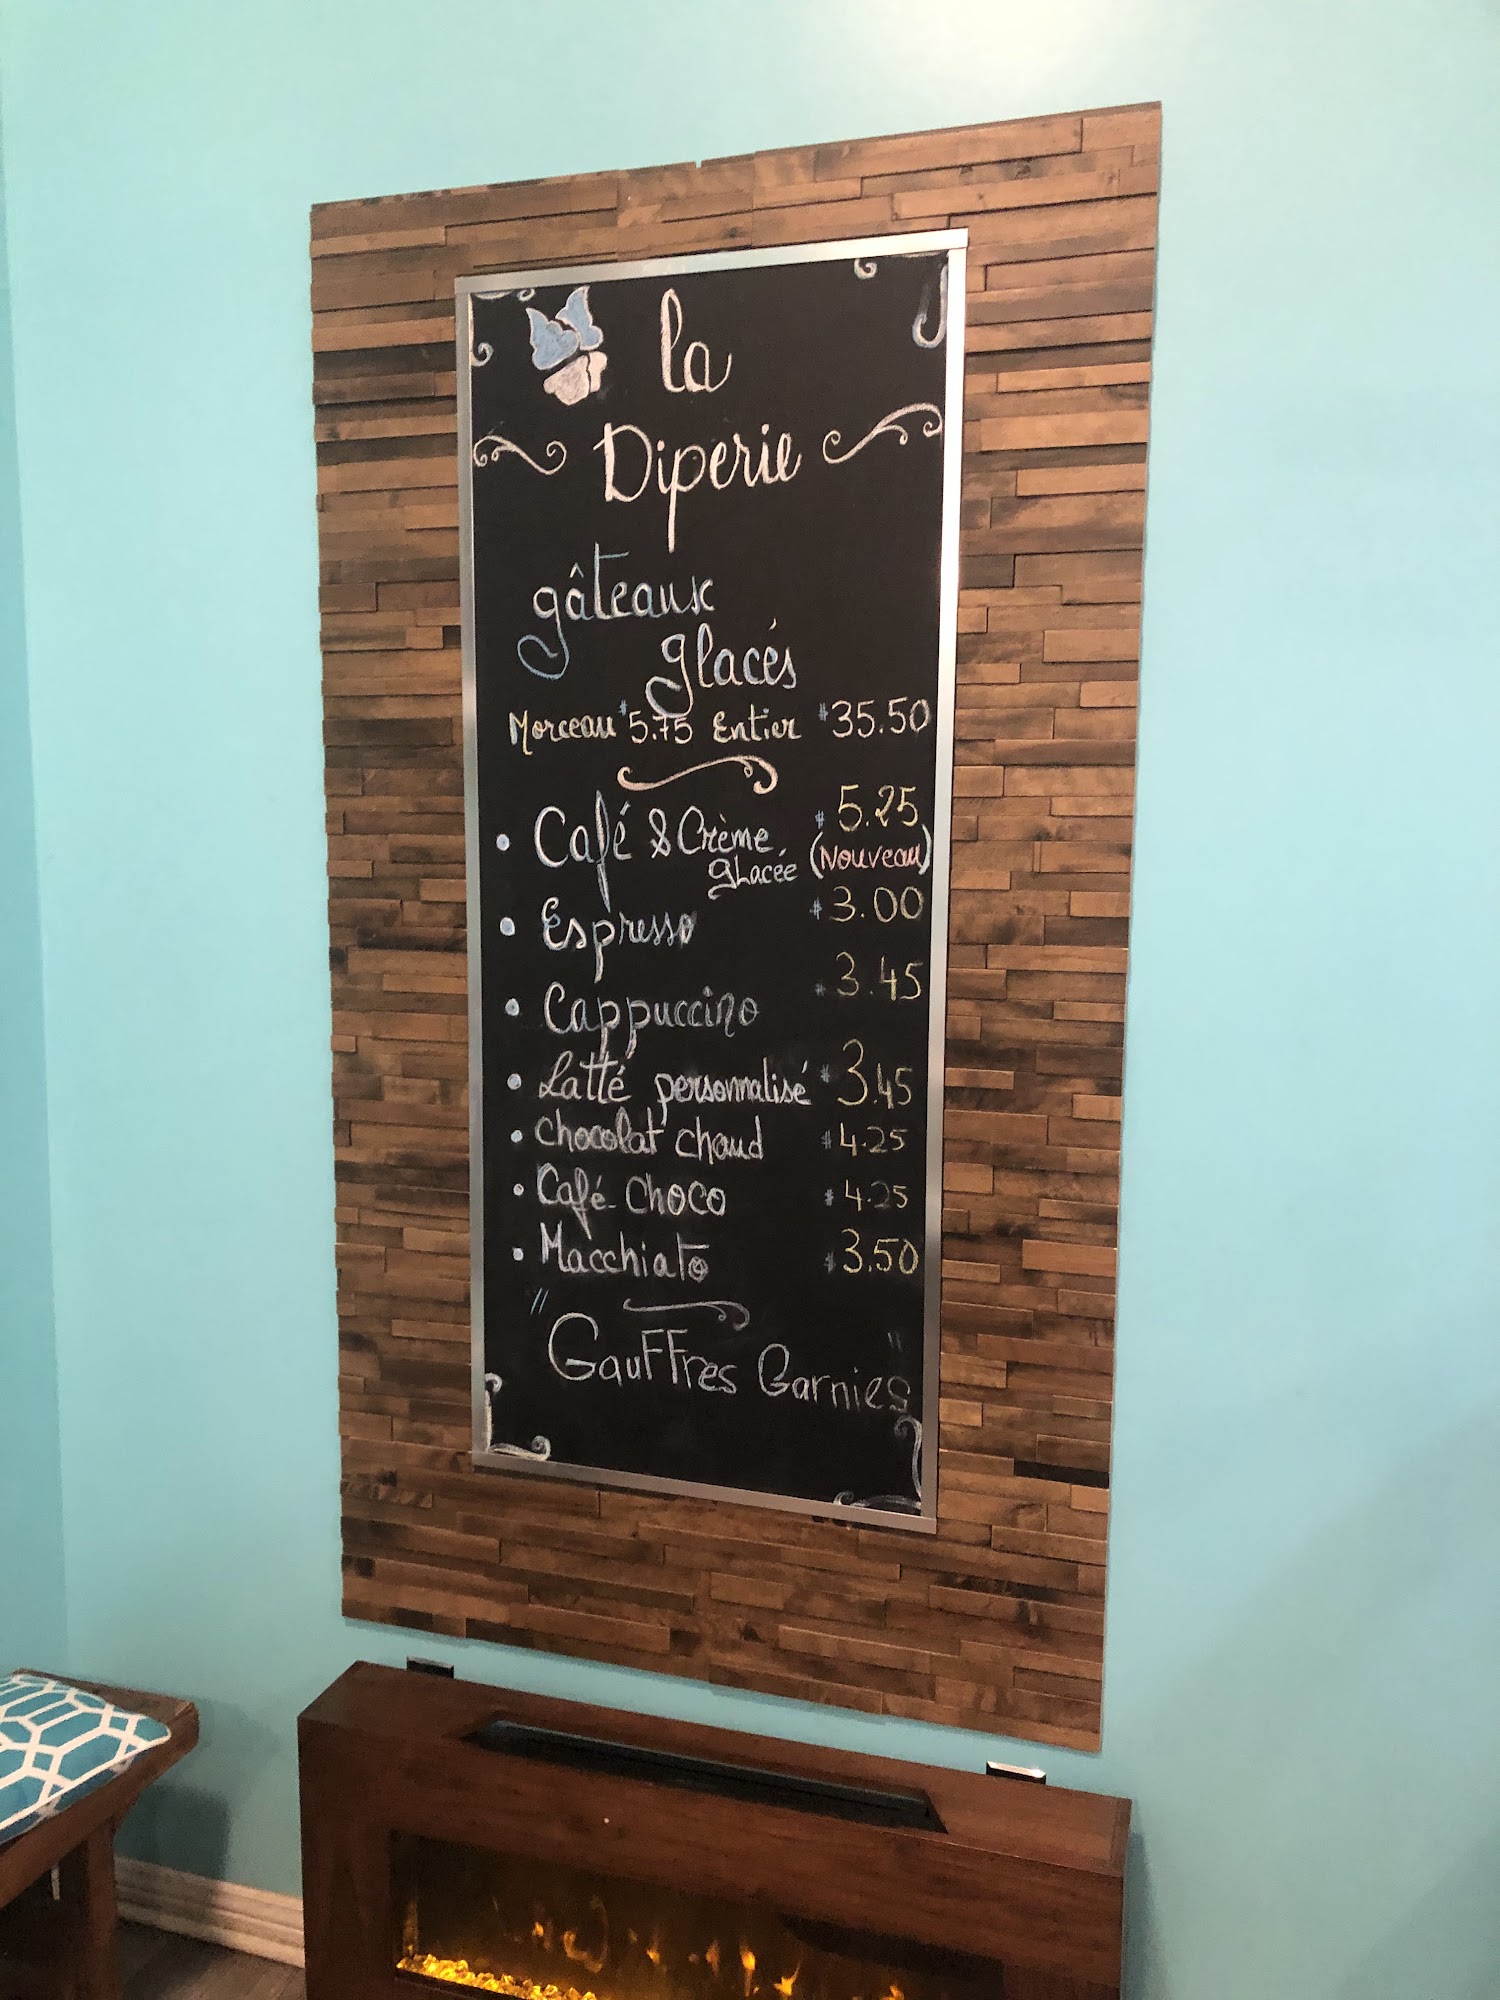 la
Diperie
gâteaux
glacés
Morceau $5.75 Entier $35.50
• Café & Crème glacée $5.25 (Nouveau)
• Espresso $3.00
• Cappuccino $3.45
• Latté personnalisé $3.45
• Chocolat chaud $4.25
• Café-Choco $4.25
• Macchiato $3.50
"Gauffres Garnies"